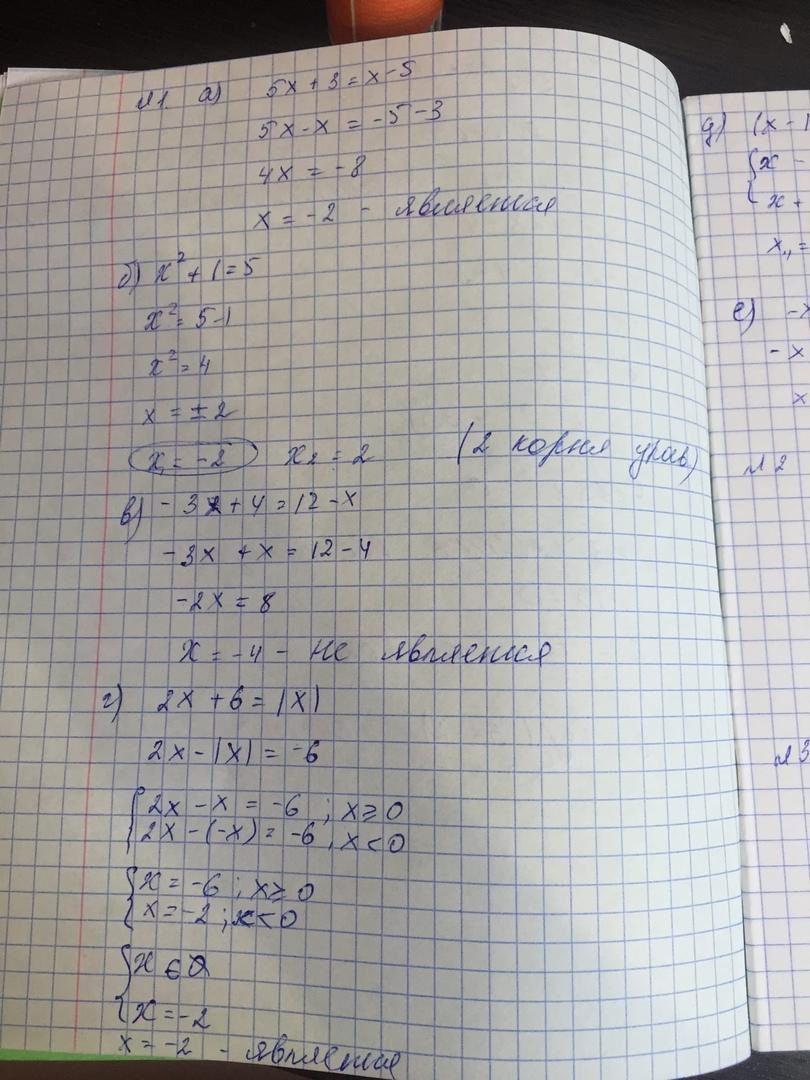 №1. а) 5x + 3 = x - 5
5x - x = -5 - 3
4x = -8
x = -2 - является
б) x² + 1 = 5
x² = 5 - 1
x² = 4
x = ± 2
x₁ = -2 x₂ = 2 (2 корня урав)
в) -3x + 4 = 12 - x
-3x + x = 12 - 4
-2x = 8
x = -4 - не является
г) 2x + 6 = |x|
2x - |x| = -6
{2x - x = -6 ; x ≥ 0
2x - (-x) = -6 ; x < 0
{x = -6 ; x ≥ 0
x = -2 ; x < 0
{x ∈ Ø
x = -2
x = -2 - является
д) (x - 1
{x -
x +
x₁, =
е) -x
-x
x
№2
№3